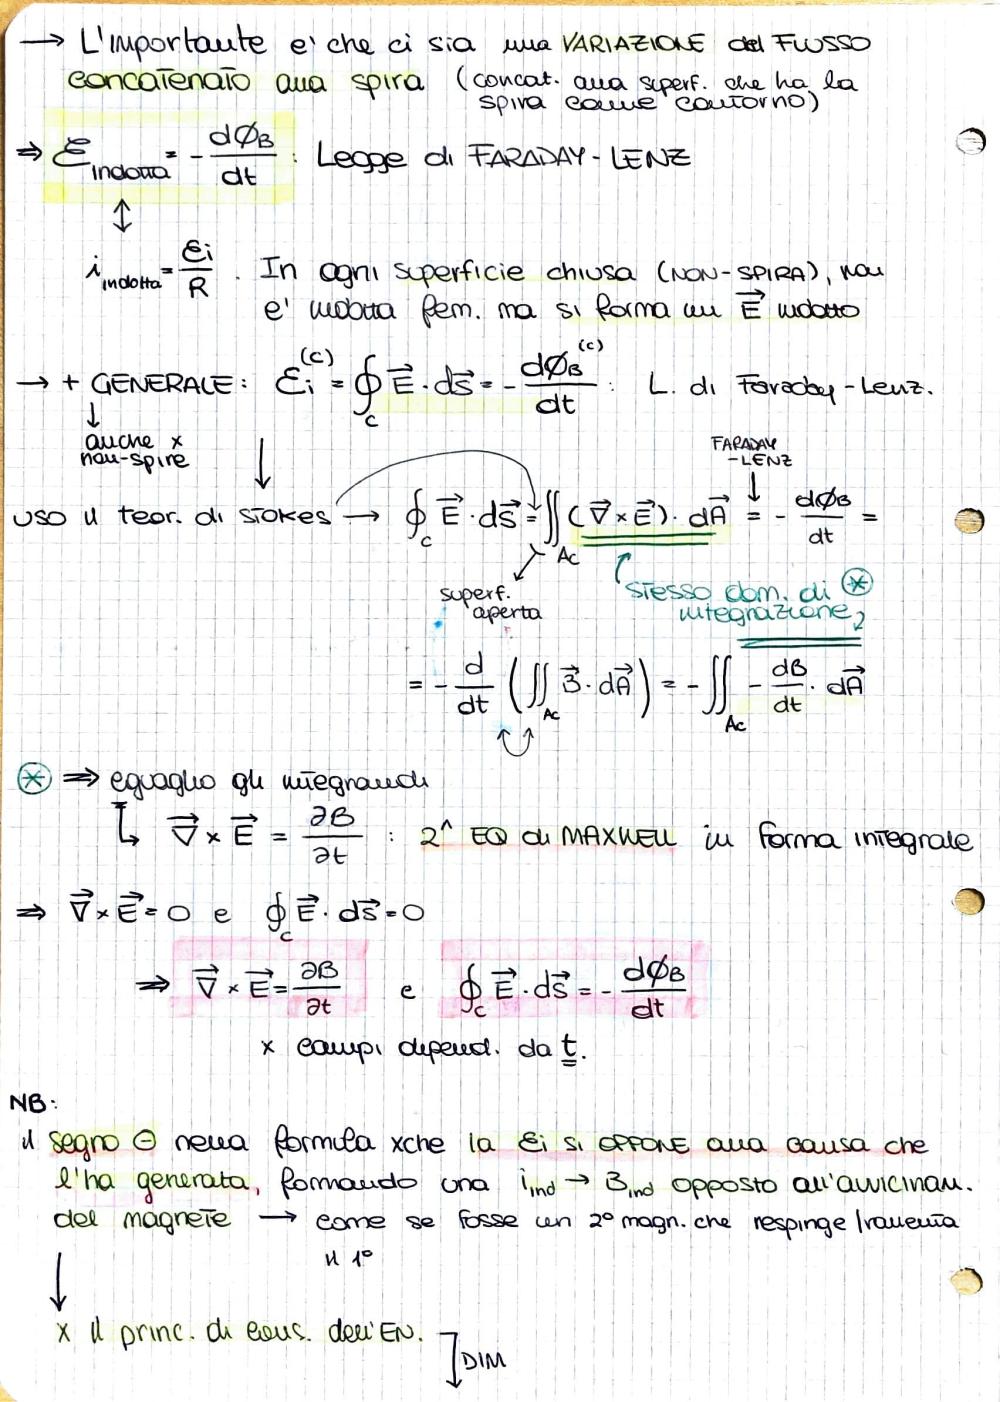 → L'importante e' che ci sia una VARIAZIONE del FLUSSO
CONCATENATO alla spira (concat. alla superf. che ha la
spira come contorno)
⇒ Ɛ indotta = - dØB/dt : Legge di FARADAY-LENZ
↕
i indotta = Ɛi/R . In ogni superficie chiusa (NON-SPIRA), non
e' indotta fem. ma si forma un E⃗ indotto
→ + GENERALE: Ɛi^(c) = ∮c E⃗ · ds⃗ = - dØB^(c)/dt : L. di Faraday-Lenz.
↓
anche x
non-spire
↓
FARADAY
-LENZ
↓
USO il teor. di STOKES → ∮c E⃗ · ds⃗ = ∬Ac (∇⃗ x E⃗) · dA⃗ = - dØB/dt =
superf.
aperta
stesso dom. di ⊛
integrazione
= - d/dt (∬Ac B⃗ · dA⃗) = - ∬Ac - dB/dt · dA⃗
⊛ ⇒ eguaglio gli integrandi
↳ ∇⃗ x E⃗ = ∂B/∂t : 2^ EQ di MAXWELL in forma integrale
⇒ ∇⃗ x E⃗ = 0 e ∮c E⃗ · ds⃗ = 0
⇒ ∇⃗ x E⃗ = ∂B/∂t e ∮c E⃗ · ds⃗ = - dØB/dt
x campi dipend. da t.
NB:
il segno ⊖ nella formula xche la Ɛi si OPPONE alla causa che
l'ha generata, formando una i ind → B ind opposto all'avvicinam.
del magnete → come se fosse un 2° magn. che respinge/rallenta
il 1°
↓
x il princ. di cons. dell'EN.
↓ DIM